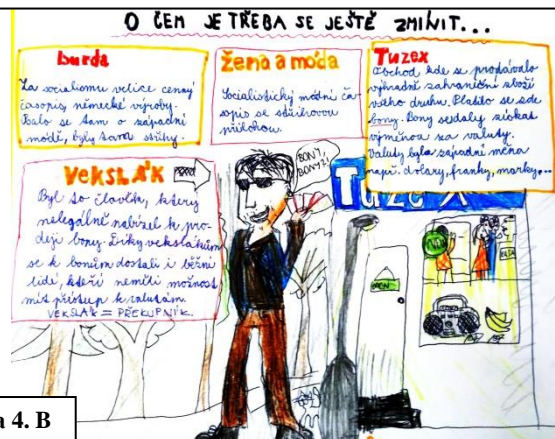 O ČEM JE TŘEBA SE JEŠTĚ ZMÍNIT...
burda
Za socialismu velice cenný
časopis německé výroby.
Psalo se tam o západní
módě, byly tam střihy.
žena a móda
Socialistický módní ča-
sopis se střihovou
přílohou.
Tuzex
Obchod kde se prodávalo
výhradně zahraniční zboží
všeho druhu. Platilo se zde
bony. Bony se daly získat
výměnou za valuty.
Valuty byla západní měna
např. dolary, franky, marky,...
VEKSLÁK
Byl to člověk, který
nelegálně nabízel k pro-
deji bony. Díky vekslákům
se k bonům dostali i běžní
lidé, kteří neměli možnost
mít přístup k valutám.
VEKSLÁK = PŘEKUPNÍK.
BONY,
BONY?!
Tuzex
OPEN
4. B